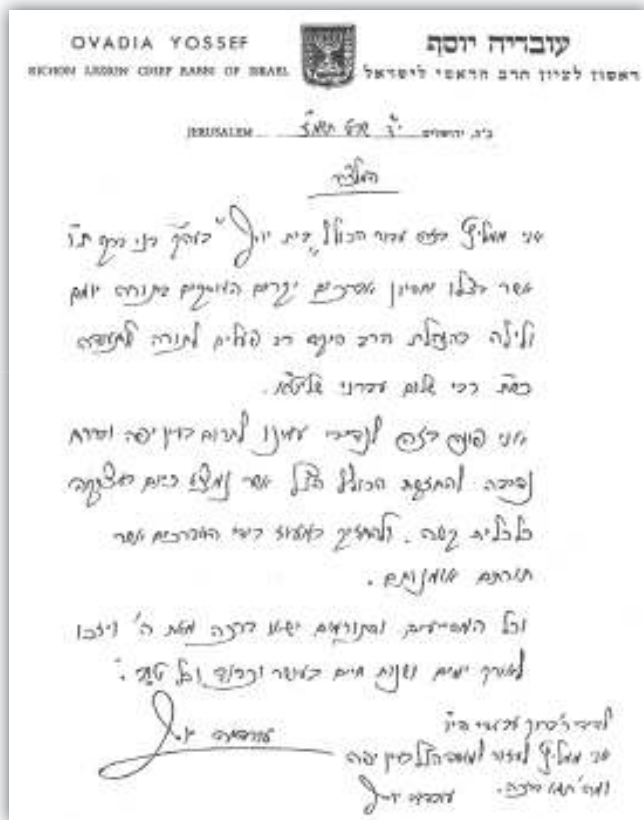 OVADIA YOSSEF
עובדיה יוסף
RICHON LEZION CHIEF RABBI OF ISRAEL
ראשון לציון הרב הראשי לישראל
JERUSALEM
ב"ה, ירושלים
המלצה
אני ממליץ בזה עבור הכולל "בית יוסף" בני ברק ת"ו
אשר בצלו יחסיון אברכים יקרים העוסקים בתורה יומם
ולילה בהנהלת הרב רב פעלים לתורה ולתעודה
רבי שלום שליט"א.
ואני פונה בזה לנדיבי עמינו לתרום בעין יפה ורוח
נדיבה להחזקת הכולל הנ"ל אשר נמצא כיום במצוקה
כלכלית קשה. ולהחזיק במעוז בידי האברכים אשר
תורתם אומנותם.
וכל המסייעים והתורמים ישאו ברכה מאת ה' ויזכו
לאורך ימים ושנות חיים בעושר וכבוד וכל טוב.
עובדיה יוסף
אני ממליץ לעזור בעין יפה
עובדיה יוסף